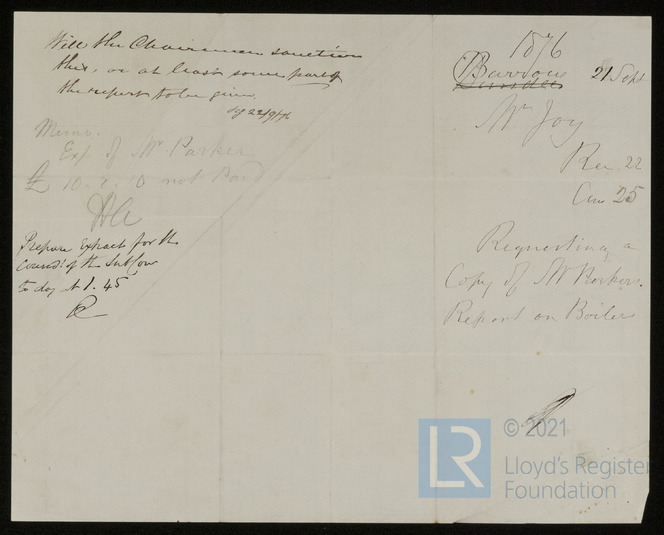 Will the Chairman sanction
this, or at least some part of
the report to be given.
22/9/76
Memo.
Exp. of Mr Parker
£ 10. 2. 10 not Paid
Prepare Extract for the
Consid.n of the Sub Com
to day at 1.45
1876
Barrow 21 Sept
Mr Joy
Rec 22
Ans 25
Requesting a
Copy of Mr Parkers
Report on Boilers
LR
© 2021
Lloyd's Register
Foundation